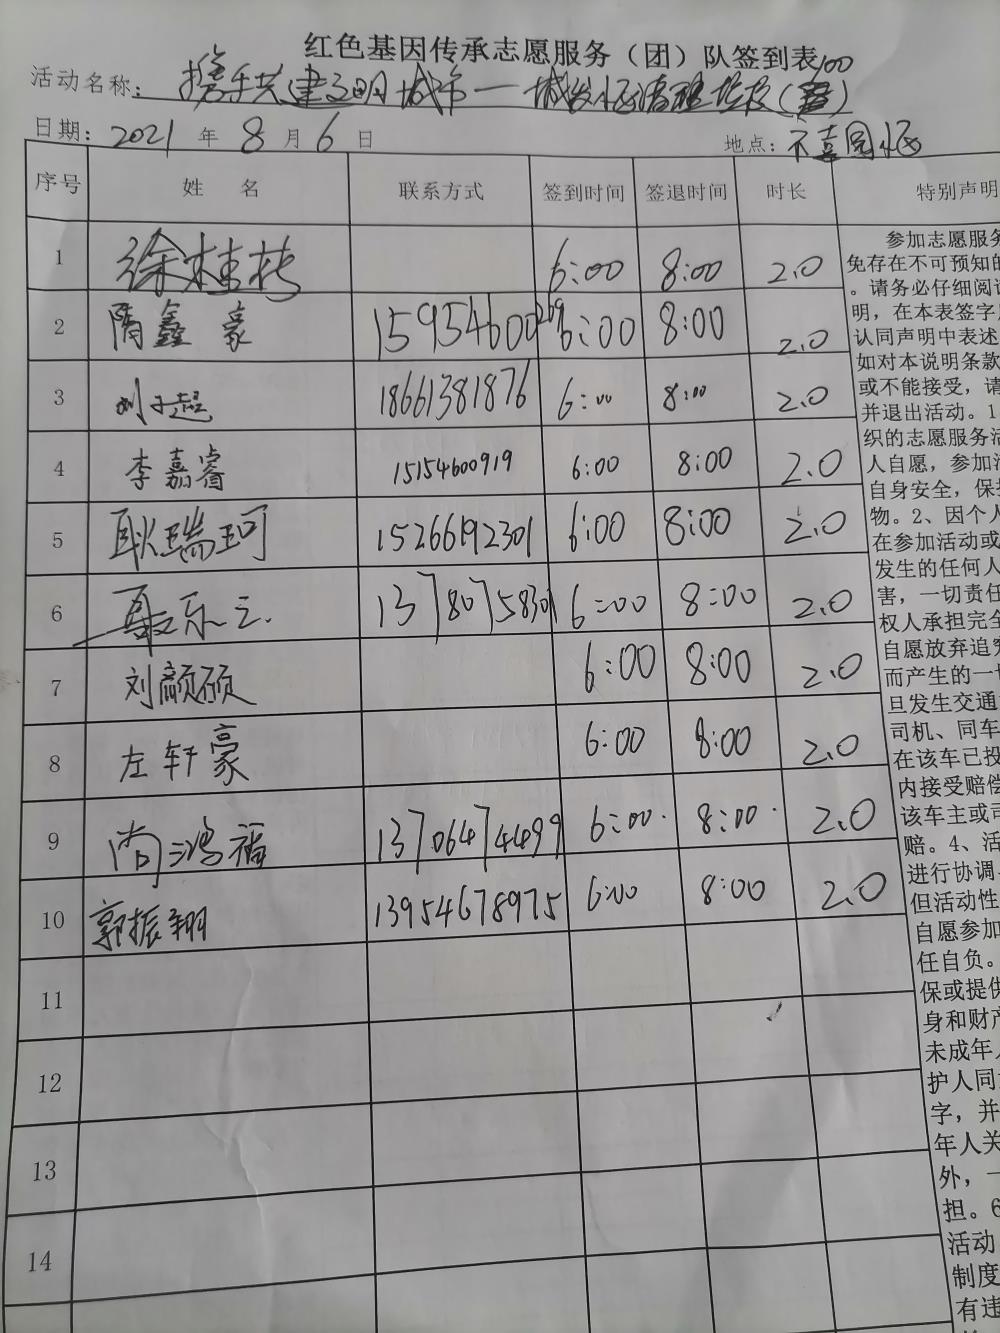 红色基因传承志愿服务（团）队签到表100
活动名称：携手共建文明城市一城发小区清理垃圾（ ）
日期：2021年8月6日 地点：不喜图小区
序号 姓 名 联系方式 签到时间 签退时间 时长 特别声明
1 徐桂 6:00 8:00 2.0
2 隋鑫豪 15954600269 6:00 8:00 2.0
3 刘子超 18661381876 6:00 8:00 2.0
4 李嘉睿 15154600919 6:00 8:00 2.0
5 耿瑞珂 15266192301 6:00 8:00 2.0
6 聂乐 13780758301 6:00 8:00 2.0
7 刘颜硕 6:00 8:00 2.0
8 左轩豪 6:00 8:00 2.0
9 尚鸿福 13706474499 6:00 8:00 2.0
10 郭振翔 13954678975 6:00 8:00 2.0
11
12
13
14
参加志愿服务
免存在不可预知的
。请务必仔细阅读
明，在本表签字
认同声明中表述
如对本说明条款
或不能接受，请
并退出活动。1
织的志愿服务活
人自愿，参加活
自身安全，保
物。2、因个人
在参加活动或
发生的任何人
害，一切责任
权人承担完全
自愿放弃追究
而产生的一切
旦发生交通
司机、同车
在该车已投
内接受赔偿
该车主或司
赔。4、活
进行协调
但活动性
自愿参加
任自负。
保或提供
身和财产
未成年人
护人同
字，并
年人关
外，一
担。6
活动
制度
有违